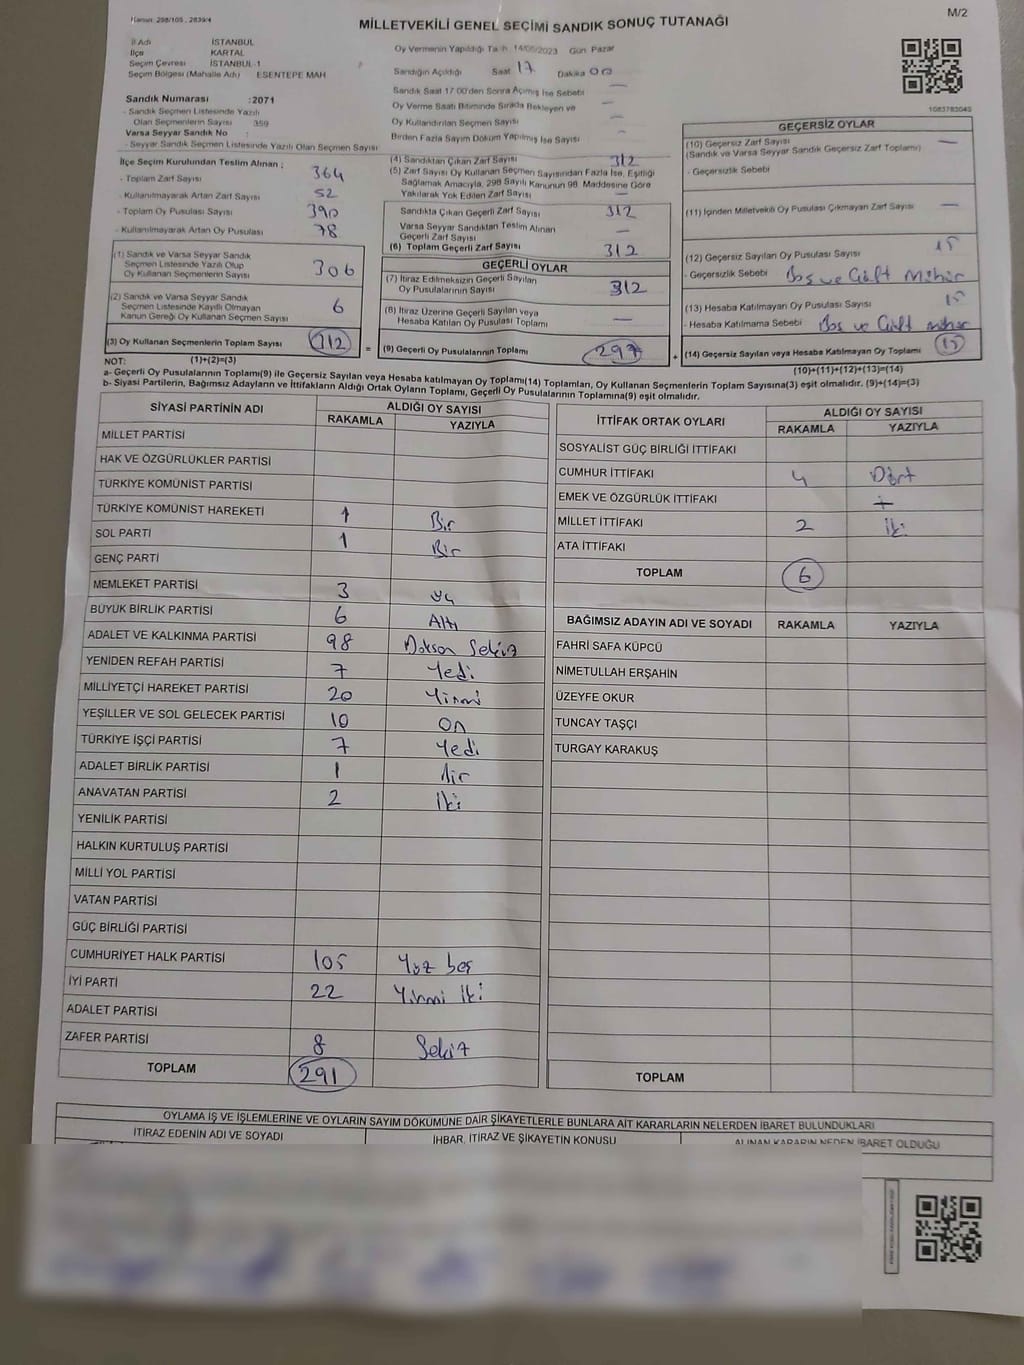 Kanun: 298/105 , 2839/4
MİLLETVEKİLİ GENEL SEÇİMİ SANDIK SONUÇ TUTANAĞI
M/2
İl Adı İSTANBUL
İlçe KARTAL
Seçim Çevresi İSTANBUL-1
Seçim Bölgesi (Mahalle Adı) ESENTEPE MAH
Sandık Numarası : 2071
- Sandık Seçmen Listesinde Yazılı
Olan Seçmenlerin Sayısı 359
Varsa Seyyar Sandık No :
- Seyyar Sandık Seçmen Listesinde Yazılı Olan Seçmen Sayısı
İlçe Seçim Kurulundan Teslim Alınan ;
- Toplam Zarf Sayısı 364
- Kullanılmayarak Artan Zarf Sayısı 52
- Toplam Oy Pusulası Sayısı 390
- Kullanılmayarak Artan Oy Pusulası 78
(1) Sandık ve Varsa Seyyar Sandık
Seçmen Listesinde Yazılı Olup
Oy Kullanan Seçmenlerin Sayısı 306
(2) Sandık ve Varsa Seyyar Sandık
Seçmen Listesinde Kayıtlı Olmayan
Kanun Gereği Oy Kullanan Seçmen Sayısı 6
(3) Oy Kullanan Seçmenlerin Toplam Sayısı 312
Oy Vermenin Yapıldığı Tarih 14/05/2023 Gün Pazar
Sandığın Açıldığı Saat 17 Dakika 00
Sandık Saat 17:00'den Sonra Açılmış İse Sebebi —
Oy Verme Saati Bitiminde Sırada Bekleyen ve
Oy Kullandırılan Seçmen Sayısı —
Birden Fazla Sayım Döküm Yapılmış İse Sayısı —
(4) Sandıktan Çıkan Zarf Sayısı 312
(5) Zarf Sayısı Oy Kullanan Seçmen Sayısından Fazla İse, Eşitliği
Sağlamak Amacıyla, 298 Sayılı Kanunun 98. Maddesine Göre
Yakılarak Yok Edilen Zarf Sayısı —
Sandıkta Çıkan Geçerli Zarf Sayısı 312
Varsa Seyyar Sandıktan Teslim Alınan
Geçerli Zarf Sayısı —
(6) Toplam Geçerli Zarf Sayısı 312
GEÇERLİ OYLAR
(7) İtiraz Edilmeksizin Geçerli Sayılan
Oy Pusulalarının Sayısı 312
(8) İtiraz Üzerine Geçerli Sayılan veya
Hesaba Katılan Oy Pusulası Toplamı —
= (9) Geçerli Oy Pusulalarının Toplamı 297 +
1083783045
GEÇERSİZ OYLAR
(10) Geçersiz Zarf Sayısı —
(Sandık ve Varsa Seyyar Sandık Geçersiz Zarf Toplamı)
- Geçersizlik Sebebi
(11) İçinden Milletvekili Oy Pusulası Çıkmayan Zarf Sayısı —
(12) Geçersiz Sayılan Oy Pusulası Sayısı 15
- Geçersizlik Sebebi Boş ve Çift Mühür
(13) Hesaba Katılmayan Oy Pusulası Sayısı 15
- Hesaba Katılmama Sebebi Boş ve Çift mühür
(14) Geçersiz Sayılan veya Hesaba Katılmayan Oy Toplamı 15
NOT: (1)+(2)=(3)
(10)+(11)+(12)+(13)=(14)
a- Geçerli Oy Pusulaları Toplamı(9) ile Geçersiz Sayılan veya Hesaba katılmayan Oy Toplamı(14) Toplamları, Oy Kullanan Seçmenlerin Toplam Sayısına(3) eşit olmalıdır. (9)+(14)=(3)
b- Siyasi Partilerin, Bağımsız Adayların ve İttifakların Aldığı Ortak Oyların Toplamı, Geçerli Oy Pusulalarının Toplamına(9) eşit olmalıdır.
SİYASİ PARTİNİN ADI ALDIĞI OY SAYISI
RAKAMLA YAZIYLA
MİLLET PARTİSİ
HAK VE ÖZGÜRLÜKLER PARTİSİ
TÜRKİYE KOMÜNİST PARTİSİ
TÜRKİYE KOMÜNİST HAREKETİ 1 Bir
SOL PARTİ 1 Bir
GENÇ PARTİ
MEMLEKET PARTİSİ 3 üç
BÜYÜK BİRLİK PARTİSİ 6 Altı
ADALET VE KALKINMA PARTİSİ 98 Doksan Sekiz
YENİDEN REFAH PARTİSİ 7 Yedi
MİLLİYETÇİ HAREKET PARTİSİ 20 Yirmi
YEŞİLLER VE SOL GELECEK PARTİSİ 10 On
TÜRKİYE İŞÇİ PARTİSİ 7 Yedi
ADALET BİRLİK PARTİSİ 1 Bir
ANAVATAN PARTİSİ 2 İki
YENİLİK PARTİSİ
HALKIN KURTULUŞ PARTİSİ
MİLLİ YOL PARTİSİ
VATAN PARTİSİ
GÜÇ BİRLİĞİ PARTİSİ
CUMHURİYET HALK PARTİSİ 105 Yüz beş
İYİ PARTİ 22 Yirmi İki
ADALET PARTİSİ
ZAFER PARTİSİ 8 Sekiz
TOPLAM 291
İTTİFAK ORTAK OYLARI ALDIĞI OY SAYISI
RAKAMLA YAZIYLA
SOSYALİST GÜÇ BİRLİĞİ İTTİFAKI
CUMHUR İTTİFAKI 4 Dört
EMEK VE ÖZGÜRLÜK İTTİFAKI
MİLLET İTTİFAKI 2 İki
ATA İTTİFAKI
TOPLAM 6
BAĞIMSIZ ADAYIN ADI VE SOYADI RAKAMLA YAZIYLA
FAHRİ SAFA KÜPCÜ
NİMETULLAH ERŞAHİN
ÜZEYFE OKUR
TUNCAY TAŞÇI
TURGAY KARAKUŞ
TOPLAM
OYLAMA İŞ VE İŞLEMLERİNE VE OYLARIN SAYIM DÖKÜMÜNE DAİR ŞİKAYETLERLE BUNLARA AİT KARARLARIN NELERDEN İBARET BULUNDUKLARI
İTİRAZ EDENİN ADI VE SOYADI İHBAR, İTİRAZ VE ŞİKAYETİN KONUSU ALINAN KARARIN NEDEN İBARET OLDUĞU